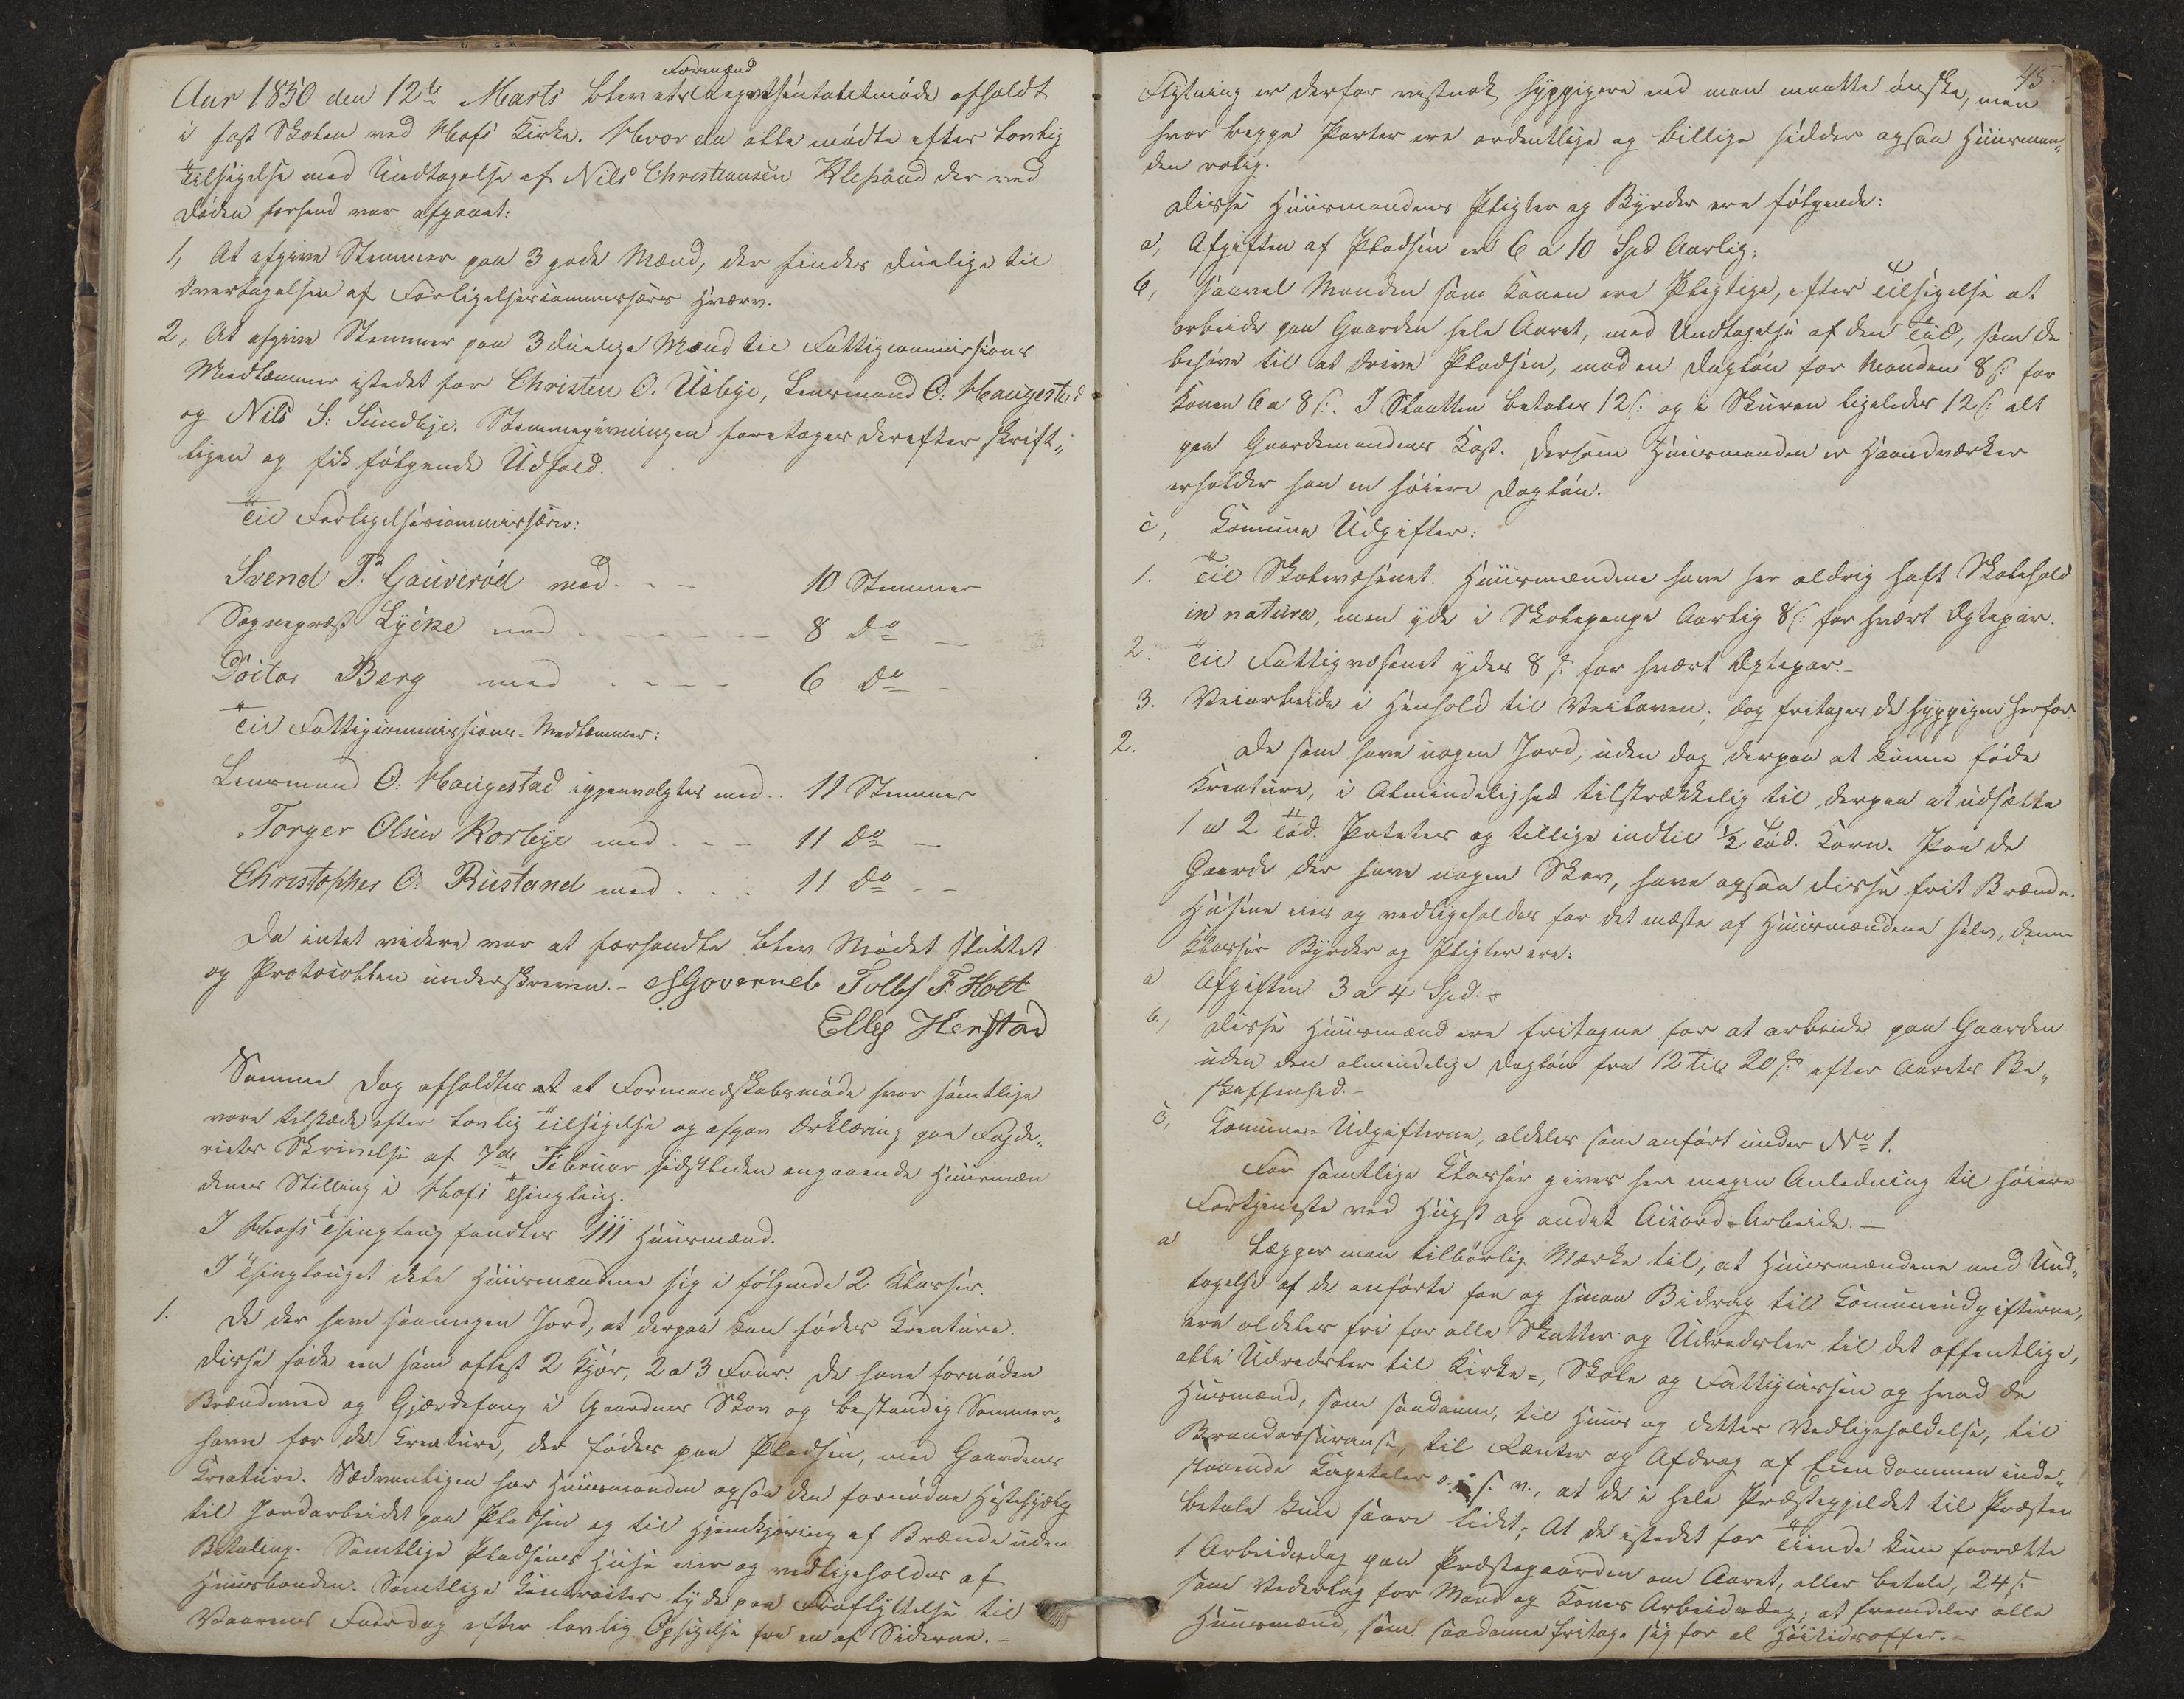 Aar 1850 den 12te Marts blev et Formænd
Repræsentatetmöde afholdt
i fast Skolen ved Hofs Kirke. Hvor da alle mödte efter Lovlig
Tilsigelse med Undtagelse af Nils Christiansen Klepsand der ved
Döden forhend var afgaaet:
1, At afgive Stemmer paa 3 gode Mænd, der findes duelige til
Overtagelsen af Forligelsescommissærs Hværv.
2, At afgive Stemmer paa 3 duelige Mænd til Fattigcommissions
Medlemmer istedet for Christen O. Üsbye, Lensmand O. Haugestad
og Nils S. Sundbye. Stemmegivningen foretoges derefter skrift„
ligen og fik fölgende Udfald.
Til Forligelsescommissærer:
Svend P. Gauveröd med - - - 10 Stemmer
Sognepræst Lycke med - - - - - - 8 Do -
Doctor Berg med - - - - 6 Do -
Til Fattigcommissions-Medlemmer:
Lensmand O. Haugestad igjenvalgtes med . . 11 Stemmer
Torger Olsen Korbye med . - - 11 Do -
Christopher O. Rustand med . . . 11 Do - -
Da intet videre var at forhandle blev Mödet sluttet
og Protocollen underskreven. - Tollef T. Holt
Ellef Herstad
Samme Dag afholdtes et Formandskabsmöde hvor samtlige
vare tilstæde efter Lovlig Tilsigelse og afgav Erklæring paa Fogde„
riets Skrivelse af 7de Februar sidstleden angaaende Huusmæn
denes Stilling i Hofs Thinglaug.
I Hofs Thinglaug fandtes 111 Huusmænd.
I Thinglauget dele Huusmændene sig i fölgende 2 Klasser.
1. De der have saamegen Jord, at derpaa kan födes Kreature.
Disse föde een som oftest 2 Kjör, 2 a 3 Faar. De have fornöden
Brændeved og Gjærdefang i Gaardens Skov og bestandig Sommer„
havn for de Kreature, der födes paa Pladsen, med Gaardens
Kreature. Sædvanligen har Huusmanden ogsaa den fornödne Hestehjælp
til Jordarbeidet paa Pladsen og til Hjemkjöring af Brænde uden
Betaling. Samtlige Pladsenes Huse eies og vedligeholdes af
Huusbonden. Samtlige Contracter lyde paa Fraflyttelse til
Vaarens Faredag efter lovlig Opsigelse fra en af Siderne. -
45.
Flytning er derfor vistnok hyppigere end man maatte önske, men
hvor begge Parter ere ordentlige og billige sidder ogsaa Huusman„
den rolig.
Disse Huusmændenes Pligter og Byrder ere fölgende:
a, Afgiften af Pladsen er 6 a 10 Spd Aarlig;
b, saavel Manden som Konen ere Pligtige, efter Tilsigelse at
arbeide paa Gaarden hele Aaret, med Undtagelse af den Tid, som de
behöve til at drive Pladsen, mod en Daglön for Manden 8 s: for
Konen 6 a 8 s:. I Slaatten betales 12 s: og i Skuren ligeledes 12 s: alt
paa Gaardmandens Kost. Dersom Huusmanden er Haandværker
erholder han en höiere Daglön.
c, Comune Udgifter:
1. Til Skolevæsenet. Huusmændene have her aldrig haft Skolehold
in natura, men yde i Skolepenge Aarlig 8 s: for hvært Ægtepar.
2. Til Fattigvæsenet ydes 8 s. for hvært Ægtepar. -
3. Veiarbeide i Henhold til Veiloven; dog fritages de hyppigen herfor.
2. De som have nogen Jord, uden dog derpaa at kunne föde
Kreature, i Almindelighed tilstrækkelig til derpaa at udsætte
1 a 2 Töd. Poteter og tillige indtil ½ Töd. Korn. Paa de
Gaarde der have nogen Skov, have ogsaa disse frit Brænde.
Husene eies og vedligeholdes for det mæste af Huusmændene selv, denne
Klasses Byrder og Pligter ere:
a Afgiften 3 a 4 Spd: -
b, Disse Huusmænd ere fritagne for at arbeide paa Gaarden
uden den almindelige Daglön fra 12 til 20 s: efter Aarets Be„
skaffenhed. -
c, Comune-Udgifterne, aldeles som anfört under No 1.
For samtlige Klasser gives her megen Anledning til höiere
Fortjeneste ved Hugst og andet Accord-Arbeide. -
a Lægger man tilbörlig Mærke til, at Huusmændene med Und„
tagelse af de anförte faa og smaa Bidrag til Comuneudgifterne,
ere aldeles fri for alle Skatter og Udredsler til det offentlige,
alle Udredsler til Kirke-, Skole og Fattigcassen og hvad de
Husmænd, som saadanne, til Huus og dettes Vedligeholdelse, til
Brandassurance, til Renter og Afdrag af Eiendommen inde„
staaende Kapitaler o. s. v., at de i hele Præstegjeldet til Præsten
betale kun saare lidet; At de istedet for Tiende kun forrette
1 Arbeidsdag paa Præstegaarden om Aaret, eller betale, 24 s.
som Vederlag for Mand og Kones Arbeidsdag; at fremdeles alle
Huusmænd, som saadanne fritage sig for al Höitidsoffer. -